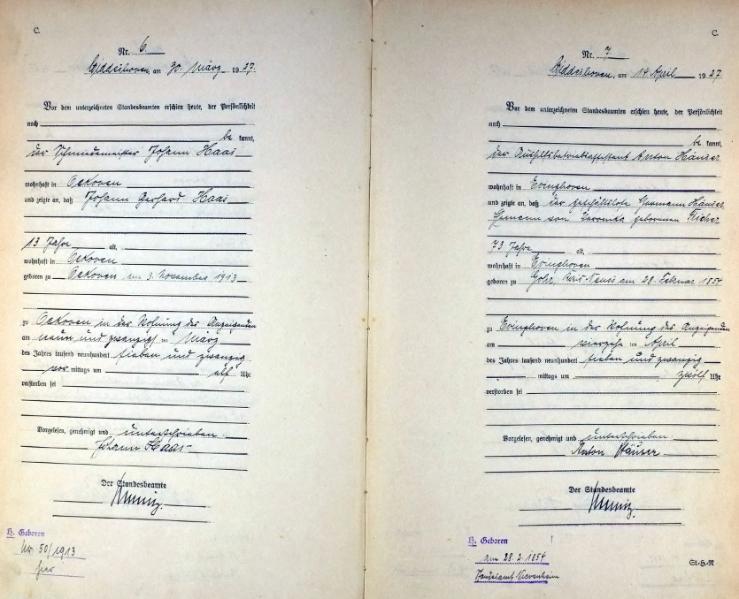 C.
Nr. 6.
am 30. März 1927.
Vor dem unterzeichneten Standesbeamten erschien heute, der Persönlichkeit
nach
be kannt,
der Schmiedemeister Johann Haas
wohnhaft in Oekoven
und zeigte an, daß Johann Gerhard Haas
13 Jahre alt,
wohnhaft in Oekoven
geboren zu Oekoven am 3. November 1913
zu Oekoven in der Wohnung des Anzeigenden
am neun und zwanzigsten März
des Jahres tausend neunhundert sieben und zwanzig
vor mittags um elf Uhr
verstorben sei
Vorgelesen, genehmigt und unterschrieben.
Johann Haas
Der Standesbeamte
H. Geboren
Nr. 50/1913
hier
C.
Nr. 7
am 14. April 1927
Vor dem unterzeichneten Standesbeamten erschien heute, der Persönlichkeit
nach
be kannt,
der Anton Häuser
wohnhaft in Evinghoven
und zeigte an, daß der geschäftslose Hermann Häuser
von geborenen
73 Jahre alt,
wohnhaft in Evinghoven
geboren zu Gohr, Kreis Neuss am 28. Februar 1854
zu Evinghoven in der Wohnung des Anzeigenden
am vierzehn April
des Jahres tausend neunhundert sieben und zwanzig
mittags um zwölf Uhr
verstorben sei
Vorgelesen, genehmigt und unterschrieben
Anton Häuser
Der Standesbeamte
H. Geboren
am 28.2.1854
Standesamt Nievenheim
St-H-R